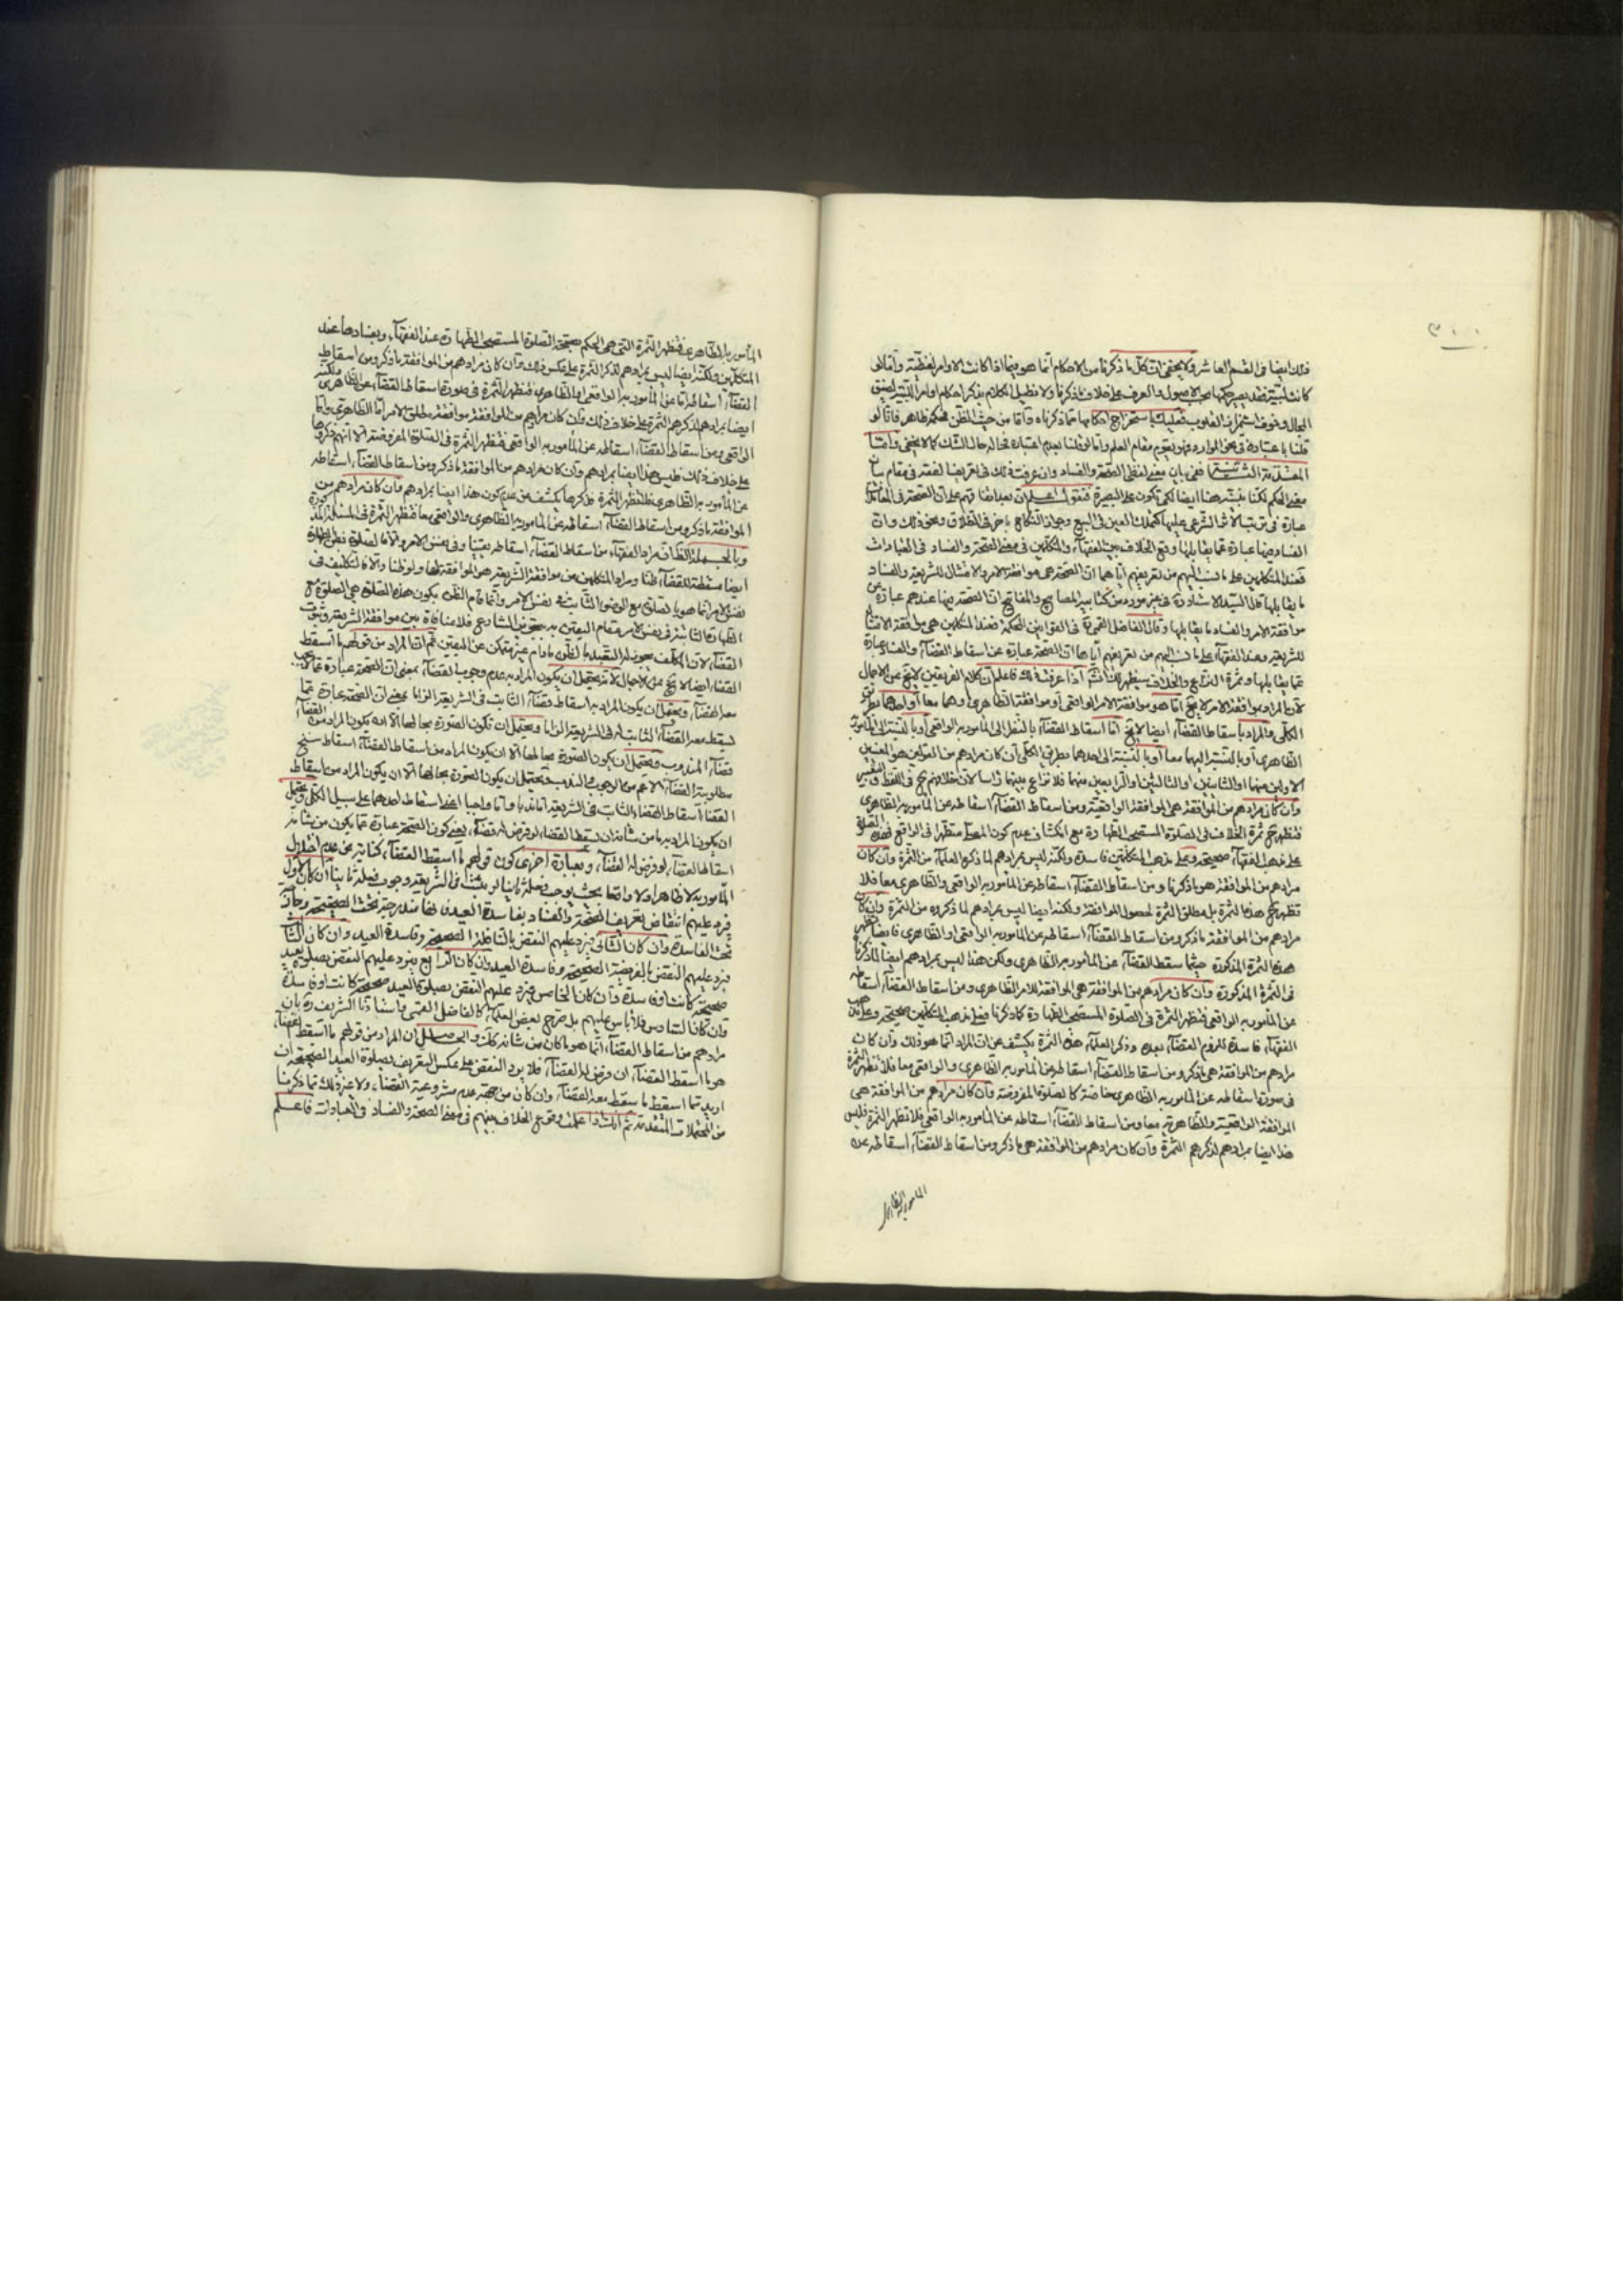 ٣٠٠
فذلك ايضا فى القسم العاشر ولا يخفى ان كل ما ذكرنا من الاحكام انما هو فيما اذا كانت الاوامر لفظية واما لو
كانت لبية فقد يصير حكمها هو الاصول والعرف على خلاف ما ذكرنا ولا نطيل الكلام بذكر احكام اوامر اللبية لضيق
المجال وخوف القلوب فعليك باستخراج احكامها مما ذكرناه واما من حيث الظن فحكمه ظاهر فانا لو
قلنا باعتباره فى نحو الموارد فهو يقوم مقام العلم واما لو قلنا بعدم اعتباره فحاله حال الشك كما لا يخفى واما
المقدمة الثانية ففى بيان معنى لفظى الصحة والفساد وان عرفت ذلك فى تعريفنا لفقه فى مقام بيان
معنى الحكم لكنا نبينه هنا ايضا لكى تكون على البصيرة فنقول اعلم ان بعد اتفاقهم على ان الصحة فى المعاملات
عبارة عن ترتب الاثر الشرعى عليها كتملك العين فى البيع وجواز النكاح فى الطلاق ونحو ذلك وان
الفساد فيها عبارة عما يقابلها وقع الخلاف بين الفقهاء والمتكلمين فى معنى الصحة والفساد فى العبادات
فعند المتكلمين على ما نسب اليهم من تعريفهم اياهما ان الصحة هى موافقة الامر والامتثال للشريعة والفساد
ما يقابلها قال السيد الاستاد فى غير مورد من كتابيه المصابيح والمفاتيح ان الصحة فيها عندهم عبارة عن
موافقة الامر والفساد ما يقابلها وقال الفاضل القمى فى القوانين المحكمة فعند المتكلمين هى موافقة الامتثال
للشريعة وعند الفقهاء على ما نسب اليهم من تعريفهم اياهما ان الصحة عبارة عن اسقاط القضاء والفساد عبارة
عما يقابلها وثمرة النزاع والخلاف سيظهر لك اذا عرفت ذلك فاعلم ان كلام الفريقين لا يخ عن الاجمال
لان المراد بموافقة الامر لا يخ اما هو موافقة الامر الواقعى او موافقة الظاهرى او هما معا او احدهما بطريق
الكلى والمراد باسقاط القضاء ايضا لا يخ اما اسقاط القضاء بالنظر الى المامور به الواقعى او بالنسبة الى المامور به
الظاهرى او بالنسبة اليهما معا او بالنسبة الى احدهما بطريق الكلى فان كان مرادهم من القولين هو المعنيين
الاولين منهما او الثانيين او الثالثين او الرابعين منهما فلا نزاع بينهما راسا لان خلافهم ح فى اللفظ والتفسير
وان كان مرادهم من الموافقة هى الموافقة الواقعية ومن اسقاط القضاء اسقاطه عن المامور به الظاهرى
فتظهر ح ثمرة الخلاف فى الصلوة المستصحب الطهارة مع انكشاف عدم كون المصلى متطهرا فى الواقع فهذه الصلوة
على مذهب الفقهاء صحيحة وعلى مذهب المتكلمين فاسدة ولكنه ليس مرادهم لما ذكره العلماء من الثمرة وان كان
مرادهم من الموافقة هو ما ذكرنا ومن اسقاط القضاء اسقاطه عن المامور به الواقعى والظاهرى معا فلا
تظهر ح هذه الثمرة بل مطلق الثمرة لحصول الموافقة ولكنه ايضا ليس مرادهم لما ذكروه من الثمرة وان كان
مرادهم من الموافقة ما ذكر ومن اسقاط القضاء اسقاطه عن المامور به الواقعى او الظاهرى فايضا تظهر
هذه الثمرة المذكورة حيثما سقط القضاء عن المامور به الظاهرى ولكن هذا ليس مرادهم ايضا لما ذكرنا
فى الثمرة المذكورة وان كان مرادهم من الموافقة هى الموافقة للامر الظاهرى ومن اسقاط القضاء اسقاطه
عن المامور به الواقعى فتظهر الثمرة فى الصلوة المستصحب الطهارة كما ذكرنا فعلى مذهب المتكلمين صحيحة وعلى مذهب
الفقهاء فاسدة للزوم القضاء بعده وذكر العلماء هذه الثمرة يكشف عن ان المراد انما هو ذلك وان كان
مرادهم من الموافقة هى ما ذكر ومن اسقاط القضاء اسقاطه عن المامور به الظاهرى والواقعى معا فلا تظهر الثمرة
فى صورة اسقاطه عن المامور به الظاهرى خاصة كالصلوة المفروضة وان كان مرادهم من الموافقة هى
الموافقة الواقعية والظاهرية معا ومن اسقاط القضاء اسقاطه عن المامور به الواقعى فلا تظهر الثمرة فليس
هذا ايضا مرادهم لذكرهم الثمرة وان كان مرادهم من الموافقة هى ما ذكر ومن اسقاط القضاء اسقاطه عن
المامور به الظاهرى
المامور به الظاهرى فتظهر الثمرة التى هى الحكم بصحة الصلوة المستصحب الطهارة عند الفقهاء وبفسادها عند
المتكلمين ولكنه ايضا ليس مرادهم لذكر الثمرة على عكس ذلك وان كان مرادهم من الموافقة ما ذكر ومن اسقاط
القضاء اسقاطه اما عن المامور به الواقعى او الظاهرى فتظهر الثمرة فى صورة اسقاط القضاء عن الظاهرى ولكنه
ايضا مرادهم لذكرهم الثمرة على خلاف ذلك وان كان مرادهم من الموافقة موافقة مطلق الامر اما الظاهرى واما
الواقعى ومن اسقاط القضاء اسقاطه عن المامور به الواقعى فتظهر الثمرة فى الصلوة المفروضة الا انهم ذكروها
على خلاف ذلك فليس هذا ايضا مرادهم وان كان مرادهم من الموافقة ما ذكر ومن اسقاط القضاء اسقاطه
عن المامور به الظاهرى فلا تظهر الثمرة فذكرها يكشف عن عدم كون هذا ايضا مرادهم وان كان مرادهم من
الموافقة ما ذكر ومن اسقاط القضاء اسقاطه عن المامور به الظاهرى والواقعى معا فتظهر الثمرة فى المسئلة المذكورة
وبالجملة الظ ان مراد الفقهاء من اسقاط القضاء اسقاطه يقينا وفى نفس الامر والا فالصلوة بظن الطهارة
ايضا مسقطة للقضاء ظنا ومراد المتكلمين من موافقة الشريعة هو الموافقة لها ولو ظنا والا فالتكليف فى
نفس الامر انما هو بالصلوة مع الوضوء الثابت فى نفس الامر وانما قام الظن بكون هذه الصلوة هى الصلوة مع
الطهارة الثابتة فى نفس الامر مقام اليقين به بتجويز الشارع فلا منافاة بين موافقة الشريعة وثبوت
القضاء لان المكلف يجوز له التعبد بالظن مادام غير متمكن عن اليقين ثم ان المراد من قولهم ما اسقط
القضاء ايضا لا يخ عن الاجمال لانه يحتمل ان يكون المراد به عدم وجوب القضاء بمعنى ان الصحة عبارة عما لا يجب
معه القضاء ويحتمل ان يكون المراد به اسقاط قضاء الثابت فى الشريعة الزاما بمعنى ان الصحة عبارة عما
يسقط معه القضاء الثابت له فى الشريعة الزاما ويحتمل ان تكون الصورة بحالها الا انه يكون المراد من القضاء
قضاء المندوب ويحتمل ان يكون الصورة بحالها الا ان يكون المراد من اسقاط القضاء اسقاط سنخ
مطلوبية القضاء الاعم من الوجوب والندب ويحتمل ان يكون الصورة بحالها الا ان يكون المراد من اسقاط
القضاء اسقاط القضاء الثابت فى الشريعة اما ندبا واما واجبا اعنى اسقاط احدهما على سبيل الكلى ويحتمل
ان يكون المراد به ما من شانه ان يسقط القضاء لو فرض له قضاء يعنى كون الصحة عبارة عما يكون من شانه
اسقاط القضاء لو فرض له القضاء وبعبارة اخرى كون قولهم ما اسقط القضاء كناية عن عدم اختلال
المامور به لا ظاهرا ولا واقعا بحيث يوجب فعله ثانيا لو ثبت فى الشريعة وجوب فعله ثانيا فان كان الاول
فيرد عليهم انتقاض تعريف الصحة والفساد بفاسدة العيدين لاندراجه تحت الصحيحة وخارج
تحت الفاسدة وان كان الثانى فيرد عليهم النقض بالنافلة الصحيحة وفاسدة العيد وان كان الثالث
فيرد عليهم النقض بالفريضة الصحيحة وفاسدة العيد وان كان الرابع فيرد عليهم النقض بصلوة العيد
صحيحة كانت او فاسدة وان كان الخامس فيرد عليهم النقض بصلوة العيد صحيحة كانت او فاسدة
وان كان السادس فلا باس عليهم بل صرح بعض العلماء كالفاضل القمى واستادنا الشريف ره بان
مرادهم من اسقاط القضاء انما هو ما كان من شانه ذلك والحاصل ان المراد من قولهم ما اسقط القضاء
هو ما اسقط القضاء ان فرض له القضاء فلا يرد النقض على عكس التعريف بصلوة العيد الصحيحة ان
اريد مما اسقط ما يسقط معه القضاء وان كان من جهة عدم مشروعية القضاء ولا غير ذلك مما ذكرنا
من المحتملات المتقدمة ثم انك اذا علمت وقوع الخلاف بينهم فى معنى الصحة والفساد فى العبادات فاعلم